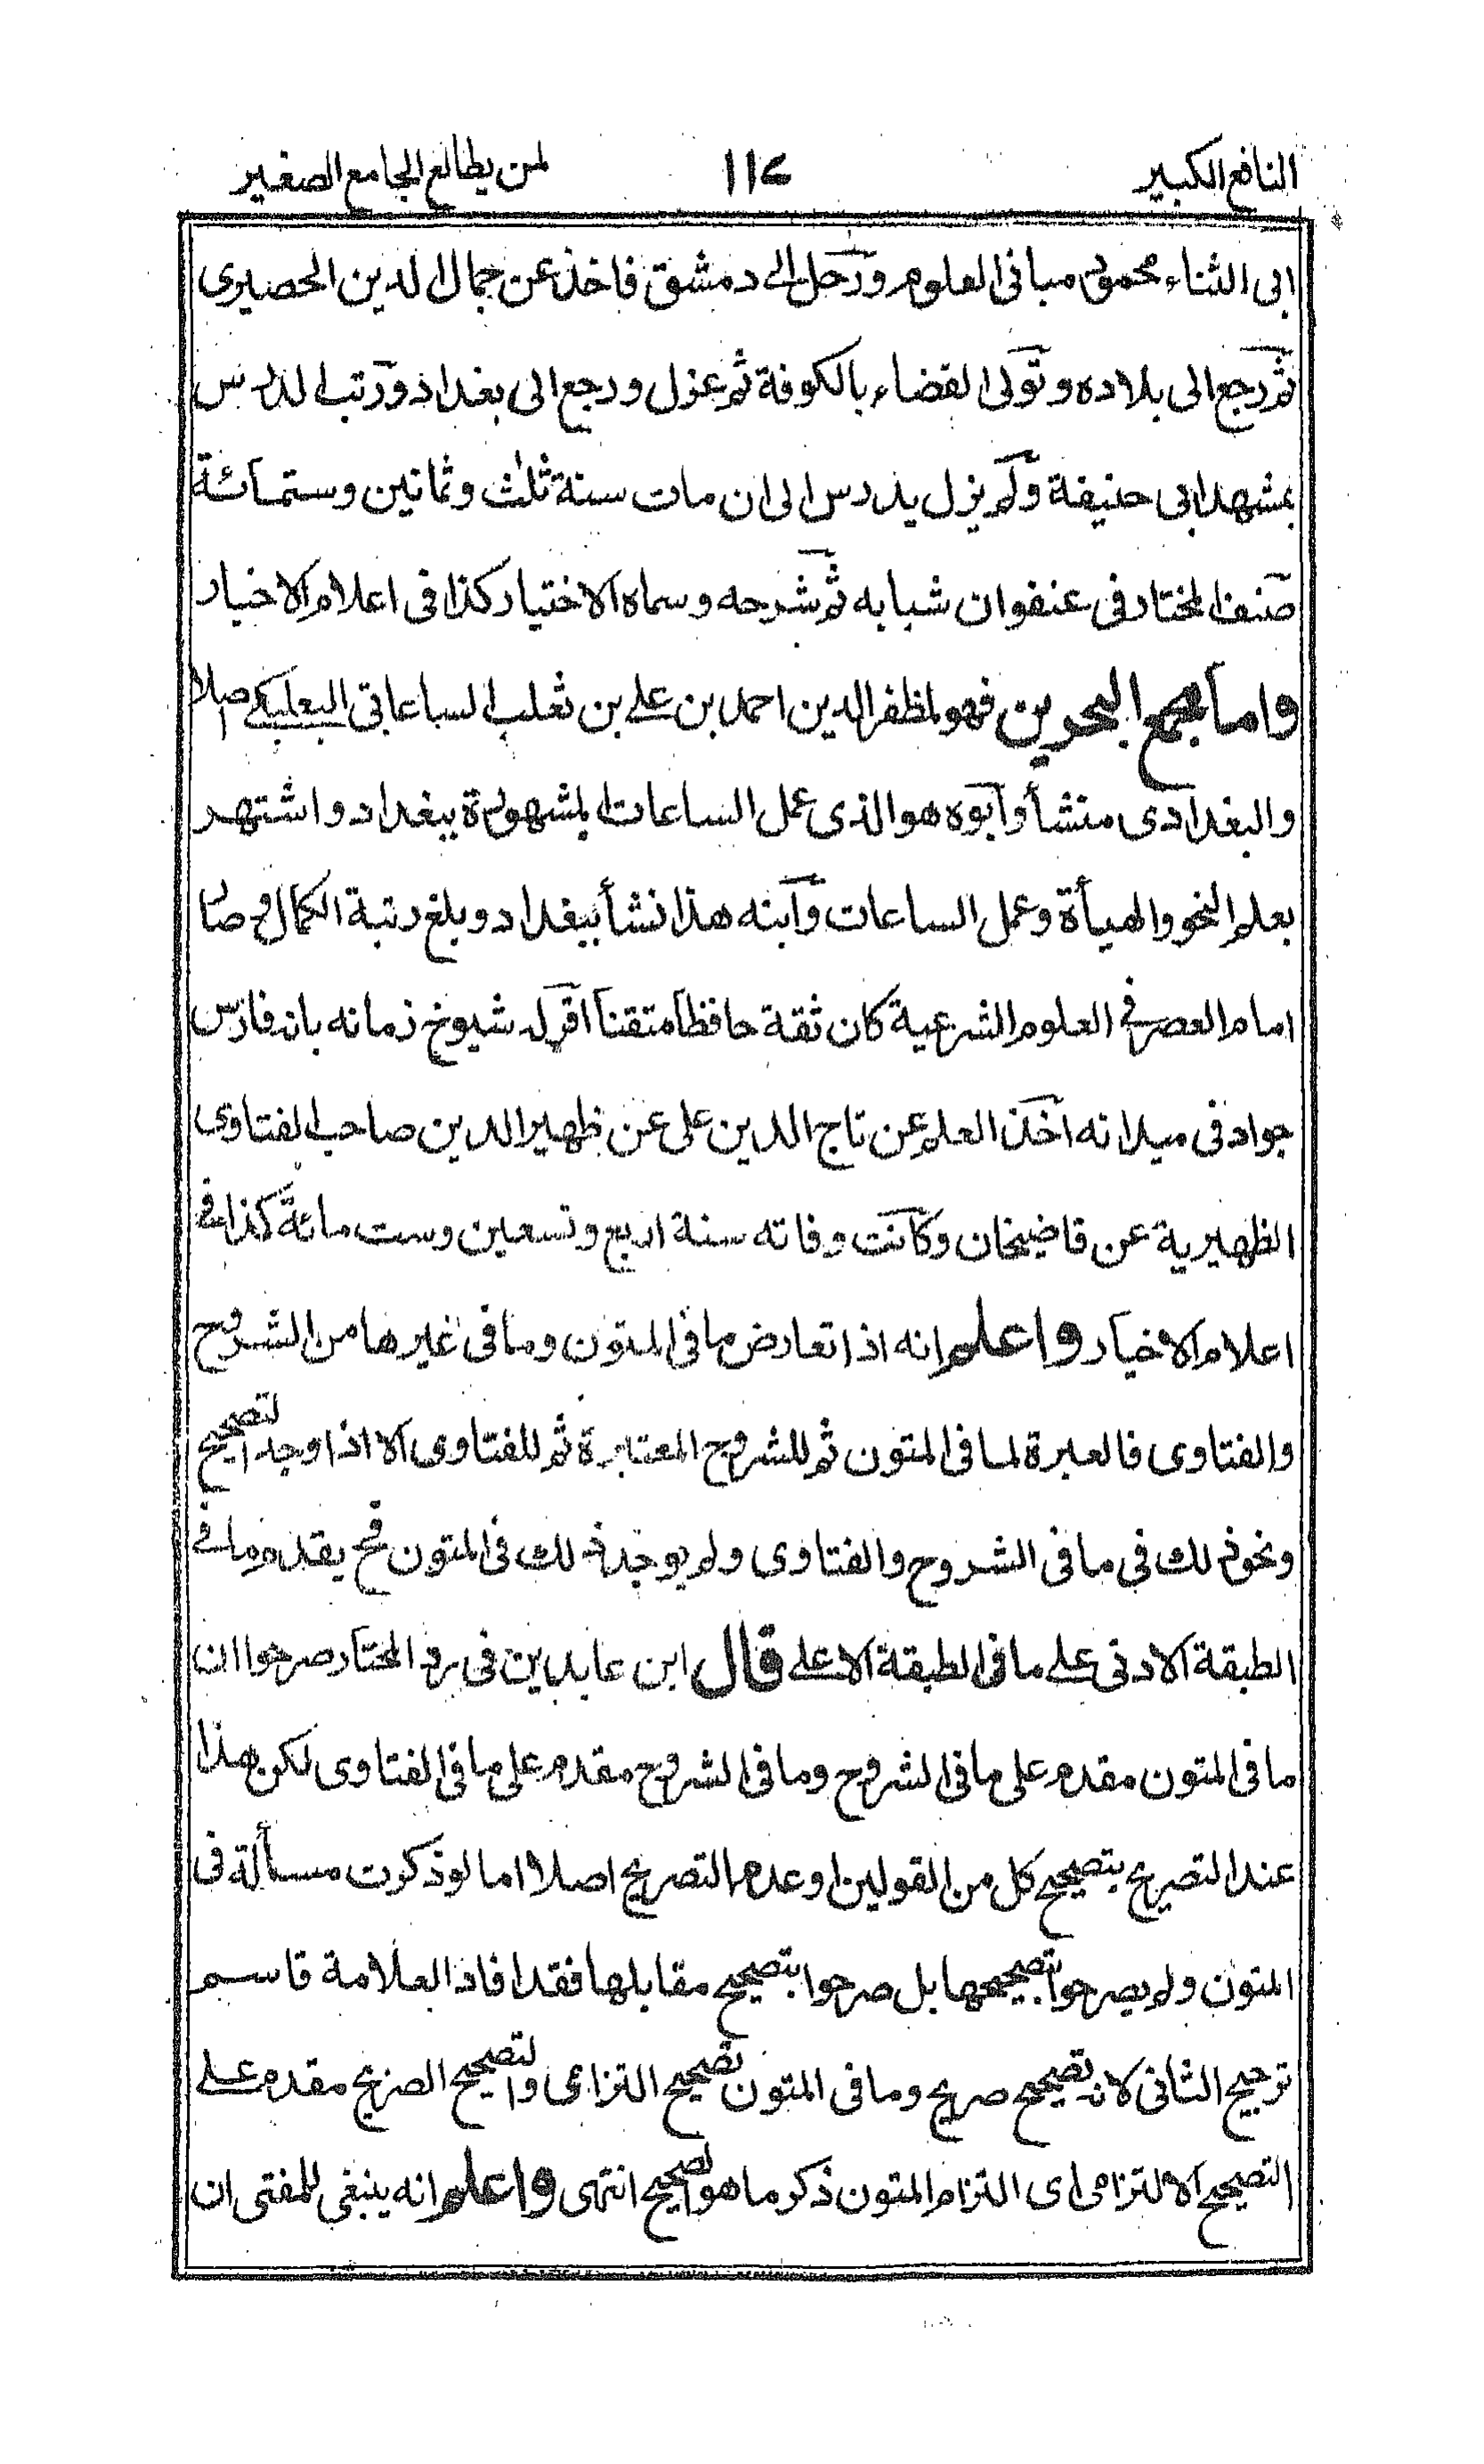 النافع الكبير ١١٤ لمن يطالع الجامع الصغير
ابى الثناء محمود مبانى العلوم ورحل الى دمشق فاخذ عن جمال الدين الحصيرى
ثم رجع الى بلاده وتولى القضاء بالكوفة ثم عزل ورجع الى بغداد ورتب للدرس
بمشهد ابى حنيفة ولم يزل يدرس الى ان مات سنة ثلث وثمانين وستمائة
صنف المختار فى عنفوان شبابه ثم شرحه وسماه الاختيار كذا فى اعلام الاخيار
واما مجمع البحرين فهو لمظفر الدين احمد بن على بن ثعلب الساعاتى البعلبكى اصلا
والبغدادى منشأ وابوه هو الذى عمل الساعات المشهورة ببغداد واشتهر
بعلم النحو والهيأة وعمل الساعات وابنه هذا نشأ ببغداد وبلغ رتبة الكمال وصار
امام العصر فى العلوم الشرعية كان ثقة حافظا متقنا اقر له شيوخ زمانه بانه فارس
جواد فى ميدانه اخذ العلم عن تاج الدين على عن ظهير الدين صاحب الفتاوى
الظهيرية عن قاضيخان وكانت وفاته سنة اربع وتسعين وست مائة كذا فى
اعلام الاخيار واعلم انه اذا تعارض ما فى المتون وما فى غيرها من الشروح
والفتاوى فالعبرة لما فى المتون ثم للشروح المعتبرة ثم للفتاوى الا اذا وجد التصحيح
ونحو ذلك فى ما فى الشروح والفتاوى ولم يوجد ذلك فى المتون فح يقدم ما فى
الطبقة الادنى على ما فى الطبقة الاعلى قال ابن عابدين فى رد المختار صرحوا ان
ما فى المتون مقدم على ما فى الشروح وما فى الشروح مقدم على ما فى الفتاوى لكن هذا
عند التصريح بتصحيح كل من القولين او عدم التصريح اصلا اما لو ذكرت مسألة فى
المتون ولم يصرحوا بتصحيحها بل صرحوا بتصحيح مقابلها فقد افاد العلامة قاسم
ترجيح الثانى لانه تصحيح صريح وما فى المتون تصحيح التزامى والتصحيح الصريح مقدم على
التصحيح الالتزامى اى التزام المتون ذكر ما هو الصحيح انتهى واعلم انه ينبغى للمفتى ان